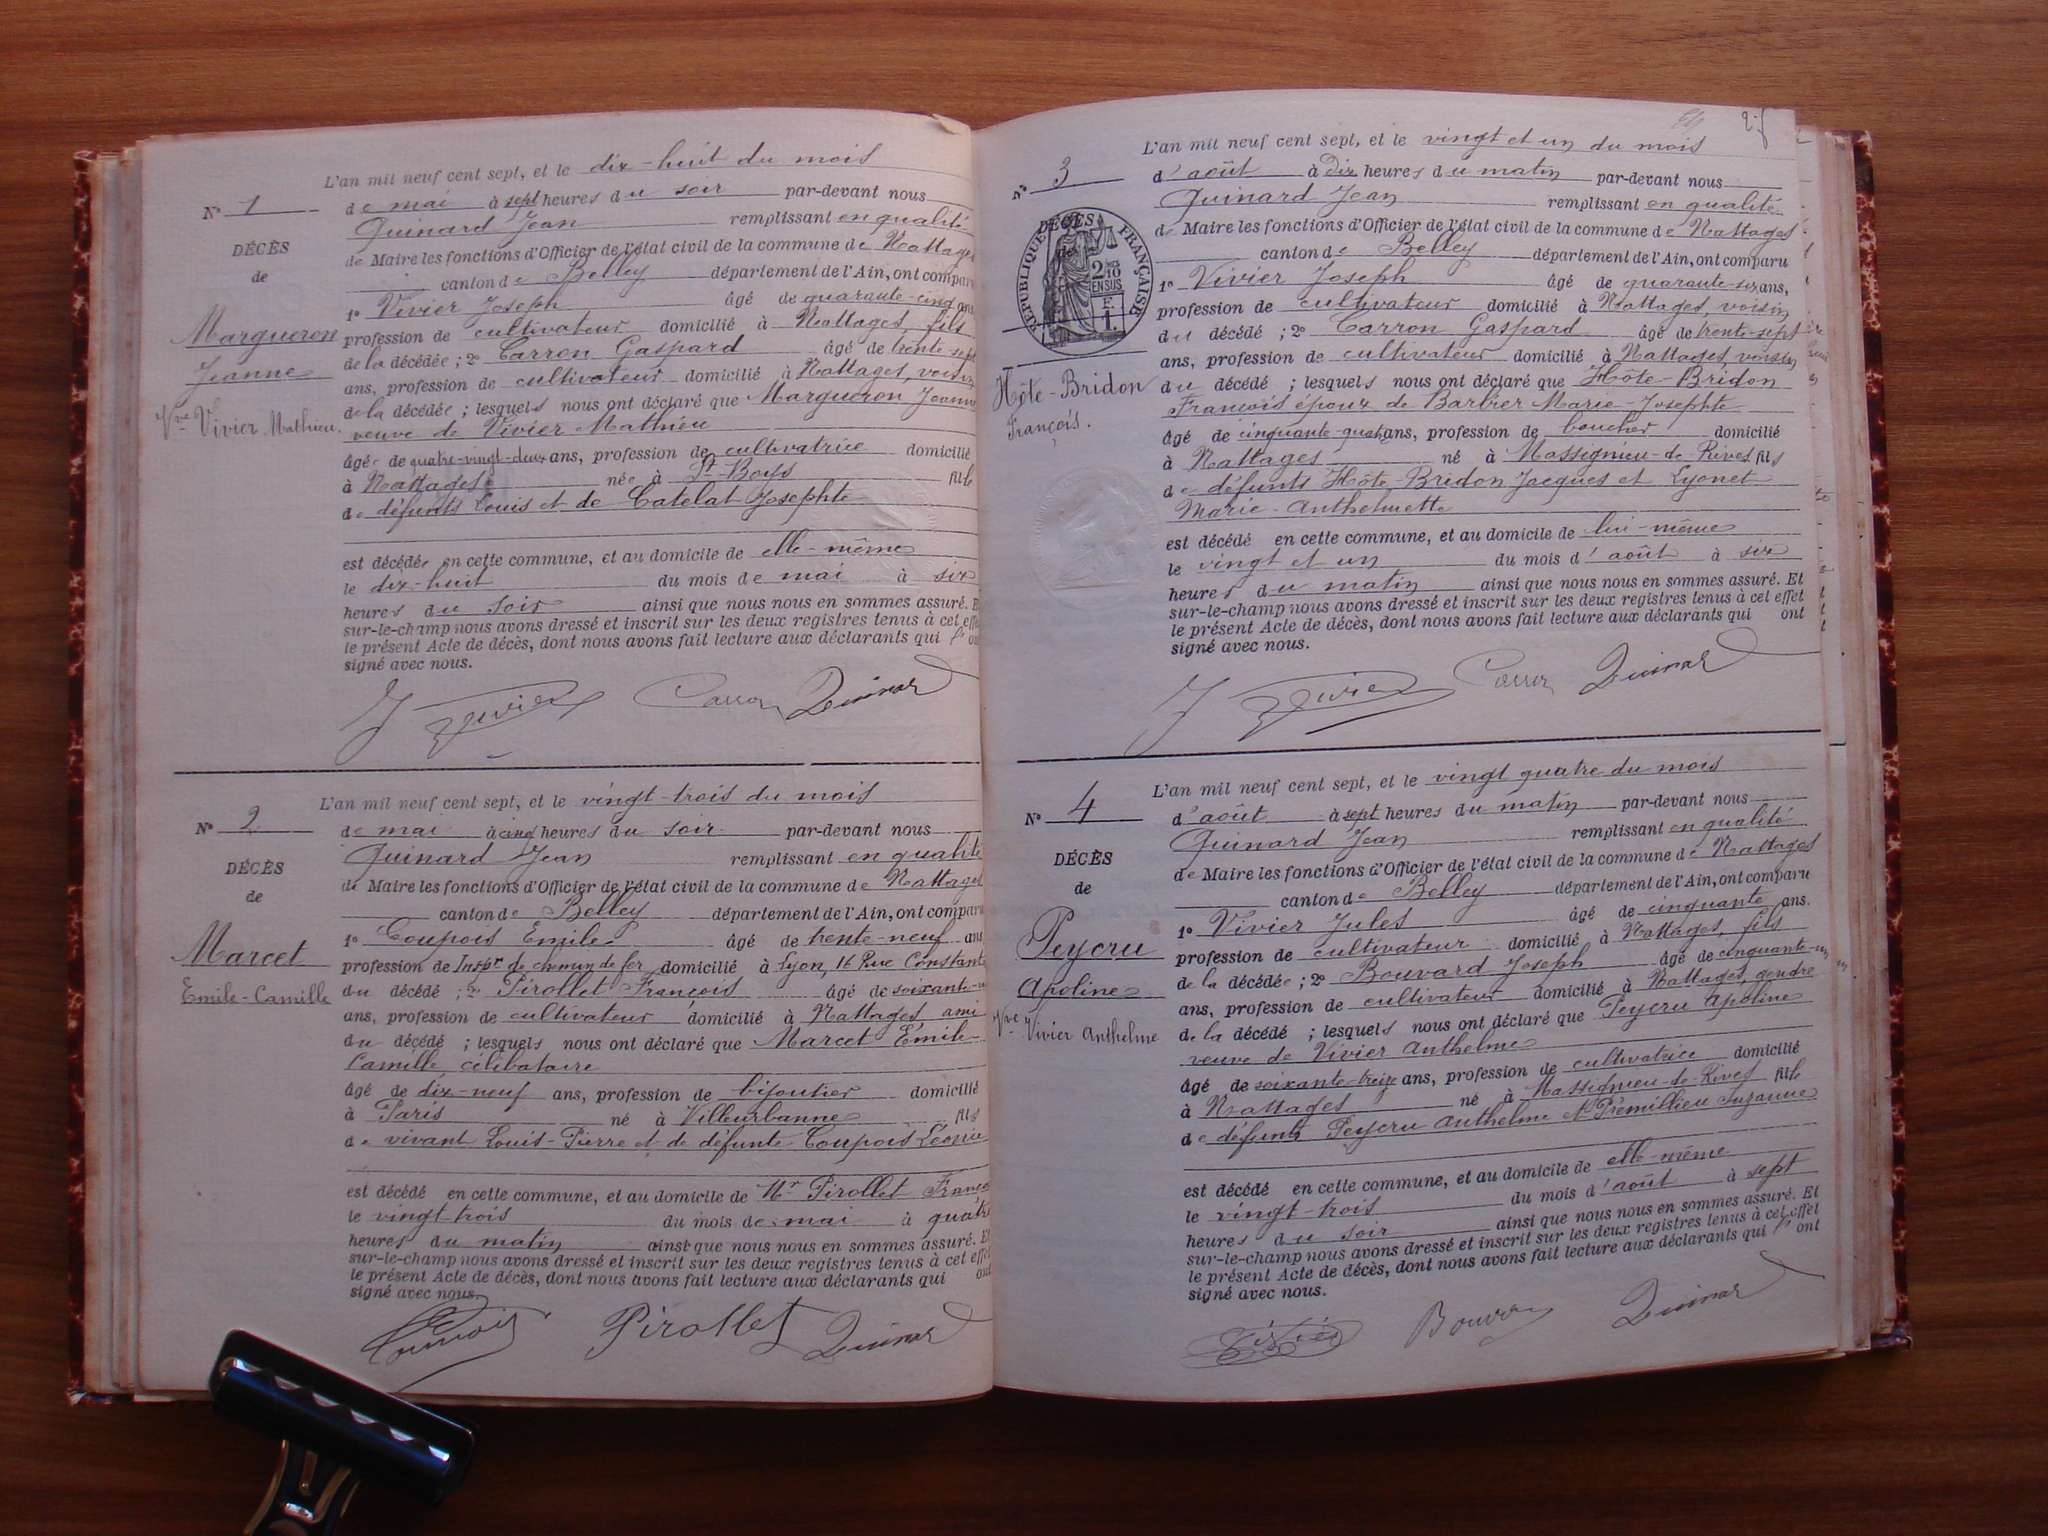 L'an mil neuf cent sept, et le dix-huit du mois
N° 1
de mai à sept heures du soir par-devant nous
Guinard Jean remplissant en qualité
de Maire les fonctions d'Officier de l'état civil de la commune de Nattages
canton de Belley département de l'Ain, ont comparu
1° Vivier Joseph âgé de quarante-cinq ans,
profession de cultivateur domicilié à Nattages, fils
de la décédée ; 2° Carron Gaspard âgé de trente-sept
ans, profession de cultivateur domicilié à Nattages, voisin
de la décédée ; lesquels nous ont déclaré que Margueron Jeanne
veuve de Vivier Mathieu
âgée de quatre-vingt-deux ans, profession de cultivatrice domicilié
à Nattages née à St-Boys fille
de défunts Louis et de Catelat Josephte
est décédée en cette commune, et au domicile de elle-même
le dix-huit du mois de mai à six
heures du soir ainsi que nous nous en sommes assuré. Et
sur-le-champ nous avons dressé et inscrit sur les deux registres tenus à cet effet
le présent Acte de décès, dont nous avons fait lecture aux déclarants qui ont
signé avec nous.
DÉCÈS
de
Margueron
Jeanne
Vve Vivier Mathieu.
J Vivier Carron Guinard
L'an mil neuf cent sept, et le vingt-trois du mois
N° 2
de mai à cinq heures du soir par-devant nous
Guinard Jean remplissant en qualité
de Maire les fonctions d'Officier de l'état civil de la commune de Nattages
canton de Belley département de l'Ain, ont comparu
1° Coupois Emile âgé de trente-neuf ans
profession de Inspr de chemin de fer domicilié à Lyon, 16 Rue Constant
du décédé ; 2° Pirollet François âgé de soixante-
ans, profession de cultivateur domicilié à Nattages ami
du décédé ; lesquels nous ont déclaré que Marcet Émile-
Camille célibataire
âgé de dix-neuf ans, profession de bijoutier domicilié
à Paris né à Villeurbanne fils
de vivant Louis-Pierre et de défunte Coupois Léonie
est décédé en cette commune, et au domicile de Mr Pirollet Franço
le vingt-trois du mois de mai à quatre
heures du matin ainsi que nous nous en sommes assuré. Et
sur-le-champ nous avons dressé et inscrit sur les deux registres tenus à cet effet
le présent Acte de décès, dont nous avons fait lecture aux déclarants qui ont
signé avec nous.
DÉCÈS
de
Marcet
Emile-Camille
Coupois Pirollet Guinard
L'an mil neuf cent sept, et le vingt et un du mois
N° 3
d'août à dix heures du matin par-devant nous
Guinard Jean remplissant en qualité
de Maire les fonctions d'Officier de l'état civil de la commune de Nattages
canton de Belley département de l'Ain, ont comparu
1° Vivier Joseph âgé de quarante-six ans,
profession de cultivateur domicilié à Nattages, voisin
du décédé ; 2° Carron Gaspard âgé de trente-sept
ans, profession de cultivateur domicilié à Nattages, voisin
du décédé ; lesquels nous ont déclaré que Hôte-Bridon
François époux de Barbier Marie-Josephte
âgé de cinquante-quatre ans, profession de boucher domicilié
à Nattages né à Massignieu-de-Rives fils
de défunts Hôte-Bridon Jacques et Lyonet
Marie-Anthelmette
est décédé en cette commune, et au domicile de lui-même
le vingt et un du mois d'août à six
heures du matin ainsi que nous nous en sommes assuré. Et
sur-le-champ nous avons dressé et inscrit sur les deux registres tenus à cet effet
le présent Acte de décès, dont nous avons fait lecture aux déclarants qui ont
signé avec nous.
DÉCÈS
de
RÉPUBLIQUE FRANÇAISE
2/10 EN SUS
F. 1.
Hôte-Bridon
François.
J Vivier Carron Guinard
L'an mil neuf cent sept, et le vingt quatre du mois
N° 4
d'août à sept heures du matin par-devant nous
Guinard Jean remplissant en qualité
de Maire les fonctions d'Officier de l'état civil de la commune de Nattages
canton de Belley département de l'Ain, ont comparu
1° Vivier Jules âgé de cinquante ans.
profession de cultivateur domicilié à Nattages, fils
de la décédée ; 2° Bouvard Joseph âgé de cinquante-un
ans, profession de cultivateur domicilié à Nattages, gendre
de la décédé ; lesquels nous ont déclaré que Peycru Apoline
veuve de Vivier Anthelme
âgé de soixante-treize ans, profession de cultivatrice domicilié
à Nattages né à Massignieu-de-Rives fille
de défunts Peycru Anthelme et Prémillieu Suzanne
est décédé en cette commune, et au domicile de elle-même
le vingt-trois du mois d'août à sept
heures du soir ainsi que nous nous en sommes assuré. Et
sur-le-champ nous avons dressé et inscrit sur les deux registres tenus à cet effet
le présent Acte de décès, dont nous avons fait lecture aux déclarants qui ont
signé avec nous.
DÉCÈS
de
Peycru
Apoline
Vve Vivier Anthelme
Vivier Bouvard Guinard